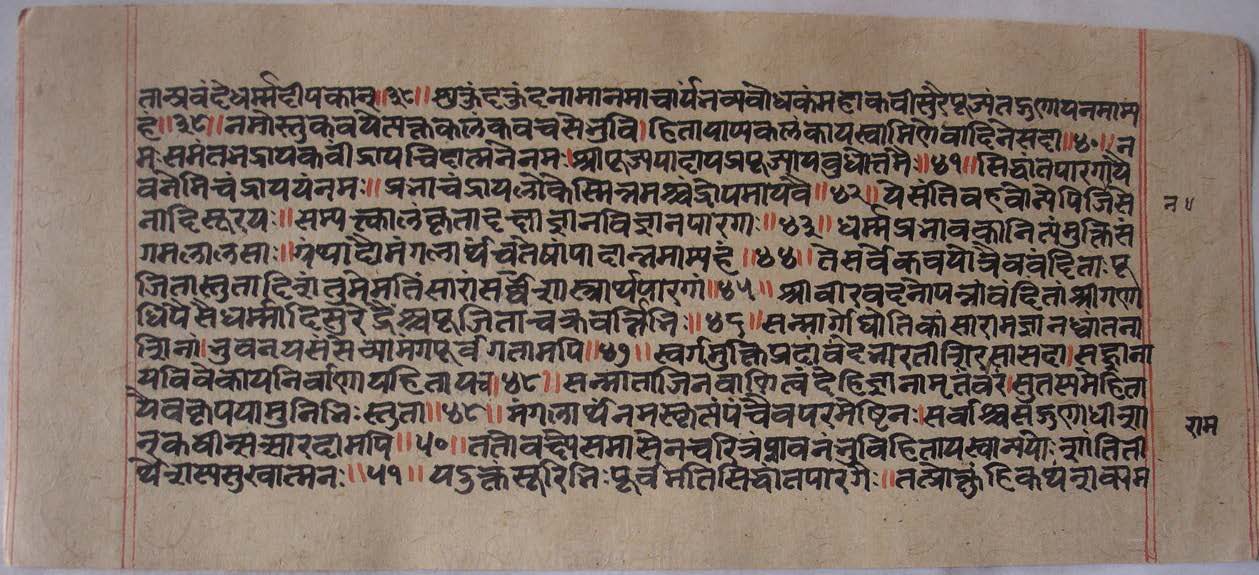 तान्प्रवंदेधर्म्मदीपकान्॥३८॥ श्रीकुंदकुंदनामानमाचार्यनव्यबोधकंमहाकवीसुरैपूज्यंतद्गुणायनमाम्य
हं॥३९॥नमोस्तुकवयेतस्मैकलंकवचसेभुवि।हितायाप्यकलंकायस्वामिणेवादिनेसदा॥४०॥न
मःसमंतभद्रायकवींद्रायचिदात्मनेनमः।श्रीपूज्यपादायप्रपूज्यायबुधोत्तमैः॥४१॥सिद्धांतपारगायै
वनेमिचंद्राययंनमः॥प्रभाचंद्रायलोकैस्मिन्नमश्चंद्रोपमायवै॥४२॥येसंतिवहवोन्येपिजिनसे
नादिसूरयः॥सम्यक्त्वालंकृतादक्षाज्ञानविज्ञानपारगाः॥४३॥धर्म्मप्रभावकानित्यंमुक्तिसं
गमलालसाः॥ग्रंथादौमंगलार्थंचतेषांपादान्नमाम्यहं॥४४॥तेसर्वेकवयोत्रैववंदिताःपू
जितास्तुतादिशंतुमेमतिंसारांसर्वशास्त्रार्थपारगां॥४५॥श्रीवीरवदनोपन्नांवंदितांश्रीगणा
धिपैःसैधर्म्मादिसुरेंद्रैश्चपूजिताचक्रवर्त्तिभिः॥४६॥सन्मार्गोद्योतिकांसारामज्ञानध्वांतना
शिनां।भुवनत्रय
स्वर्गमुक्तिप्रदांवंदेभारतींशिरसासदा।सद्ज्ञाना
यविवेकायनिर्वाणायहितायच॥४८॥सन्मातर्जिनवाणित्वंदेहिज्ञानामृतंवरं।सुतस्यमेहिता
यैवकृपयामुनिभिःस्तुता॥४९॥मंगलार्थंनमस्कृत्यपंचैवपरमेष्टिनः।सर्वाश्चसद्गुणाधीशा
न्कवीन्सत्सारदामपि॥५०॥ततोवक्ष्येसमासेनचरित्रंपावनंभुविहितायस्वान्ययोःशांतिती
र्थेशस्यसुखात्मनः॥५१॥यदुक्तंसूरिभिःपूर्वमतिसिद्धांतपारगैः॥तत्प्रोक्तुंहिकथंशक्यम
राम